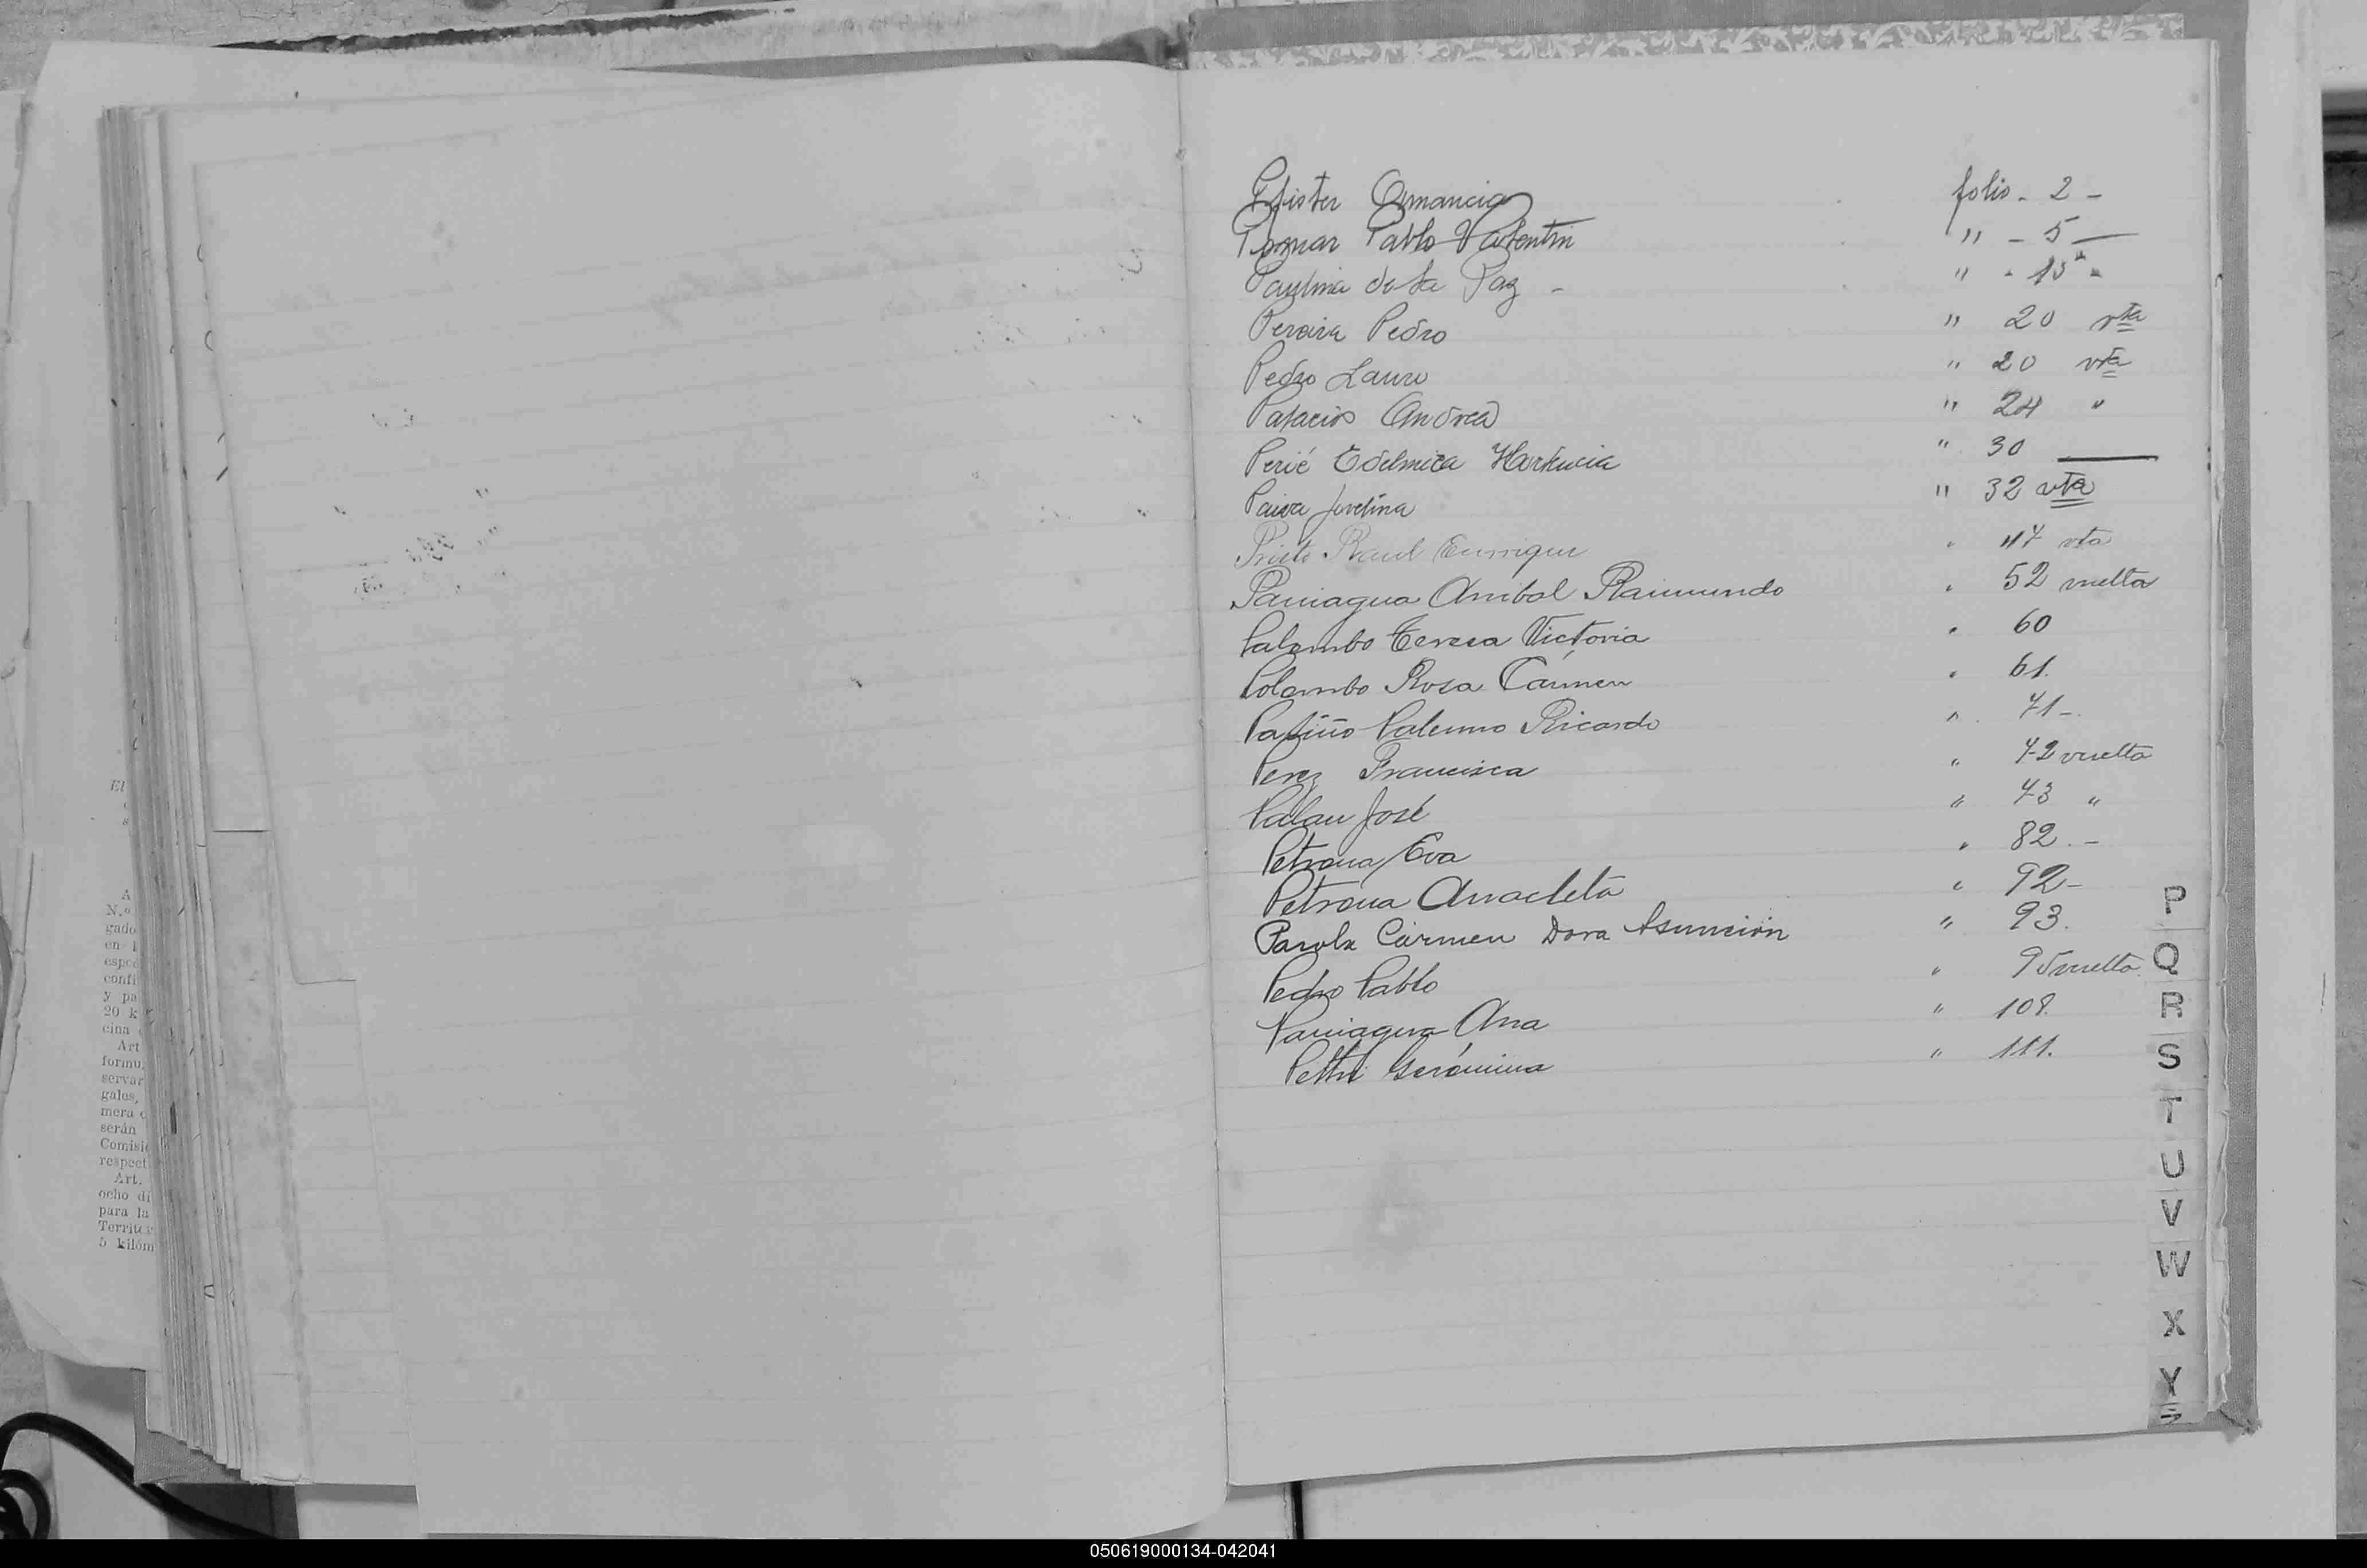 El
A
N.o
gado
en l
espe
confi
y pa
20 k
cina
Art
formu
servar
gales,
mera c
serán
Comisi
respect
Art.
ocho dí
para la
Territo
5 kilóm
Pfister Amancia folio - 2 -
Poznar Pablo Valentin " - 5 —
Paulina de la Paz - " - 15 -
Pereira Pedro " 20 vta
Pedro Lauro " 20 vta
Palacios Andrea " 24 "
Perié Edelmira " 30 —
Paiva Jovelina " 32 vta
Prieto Raul Enrrique " 47 vta
Paniagua Anibal Raimundo " 52 vuelta
Palombo Teresa Victoria " 60
Polombo Rosa Cármen " 61.
Patiño Palermo Ricardo " 71 -
Perez Francisca " 72 vuelta
Palau José " 73 "
Petrona Eva " 82. -
Petrona Anacleta " 92 -
Parola Cármen Dora Asunción " 93.
Pedro Pablo " 95 vuelta
Paniagua Ana " 108.
Petti Gerónima " 111.
P
Q
R
S
T
U
V
W
X
Y
Z
050619000134-042041